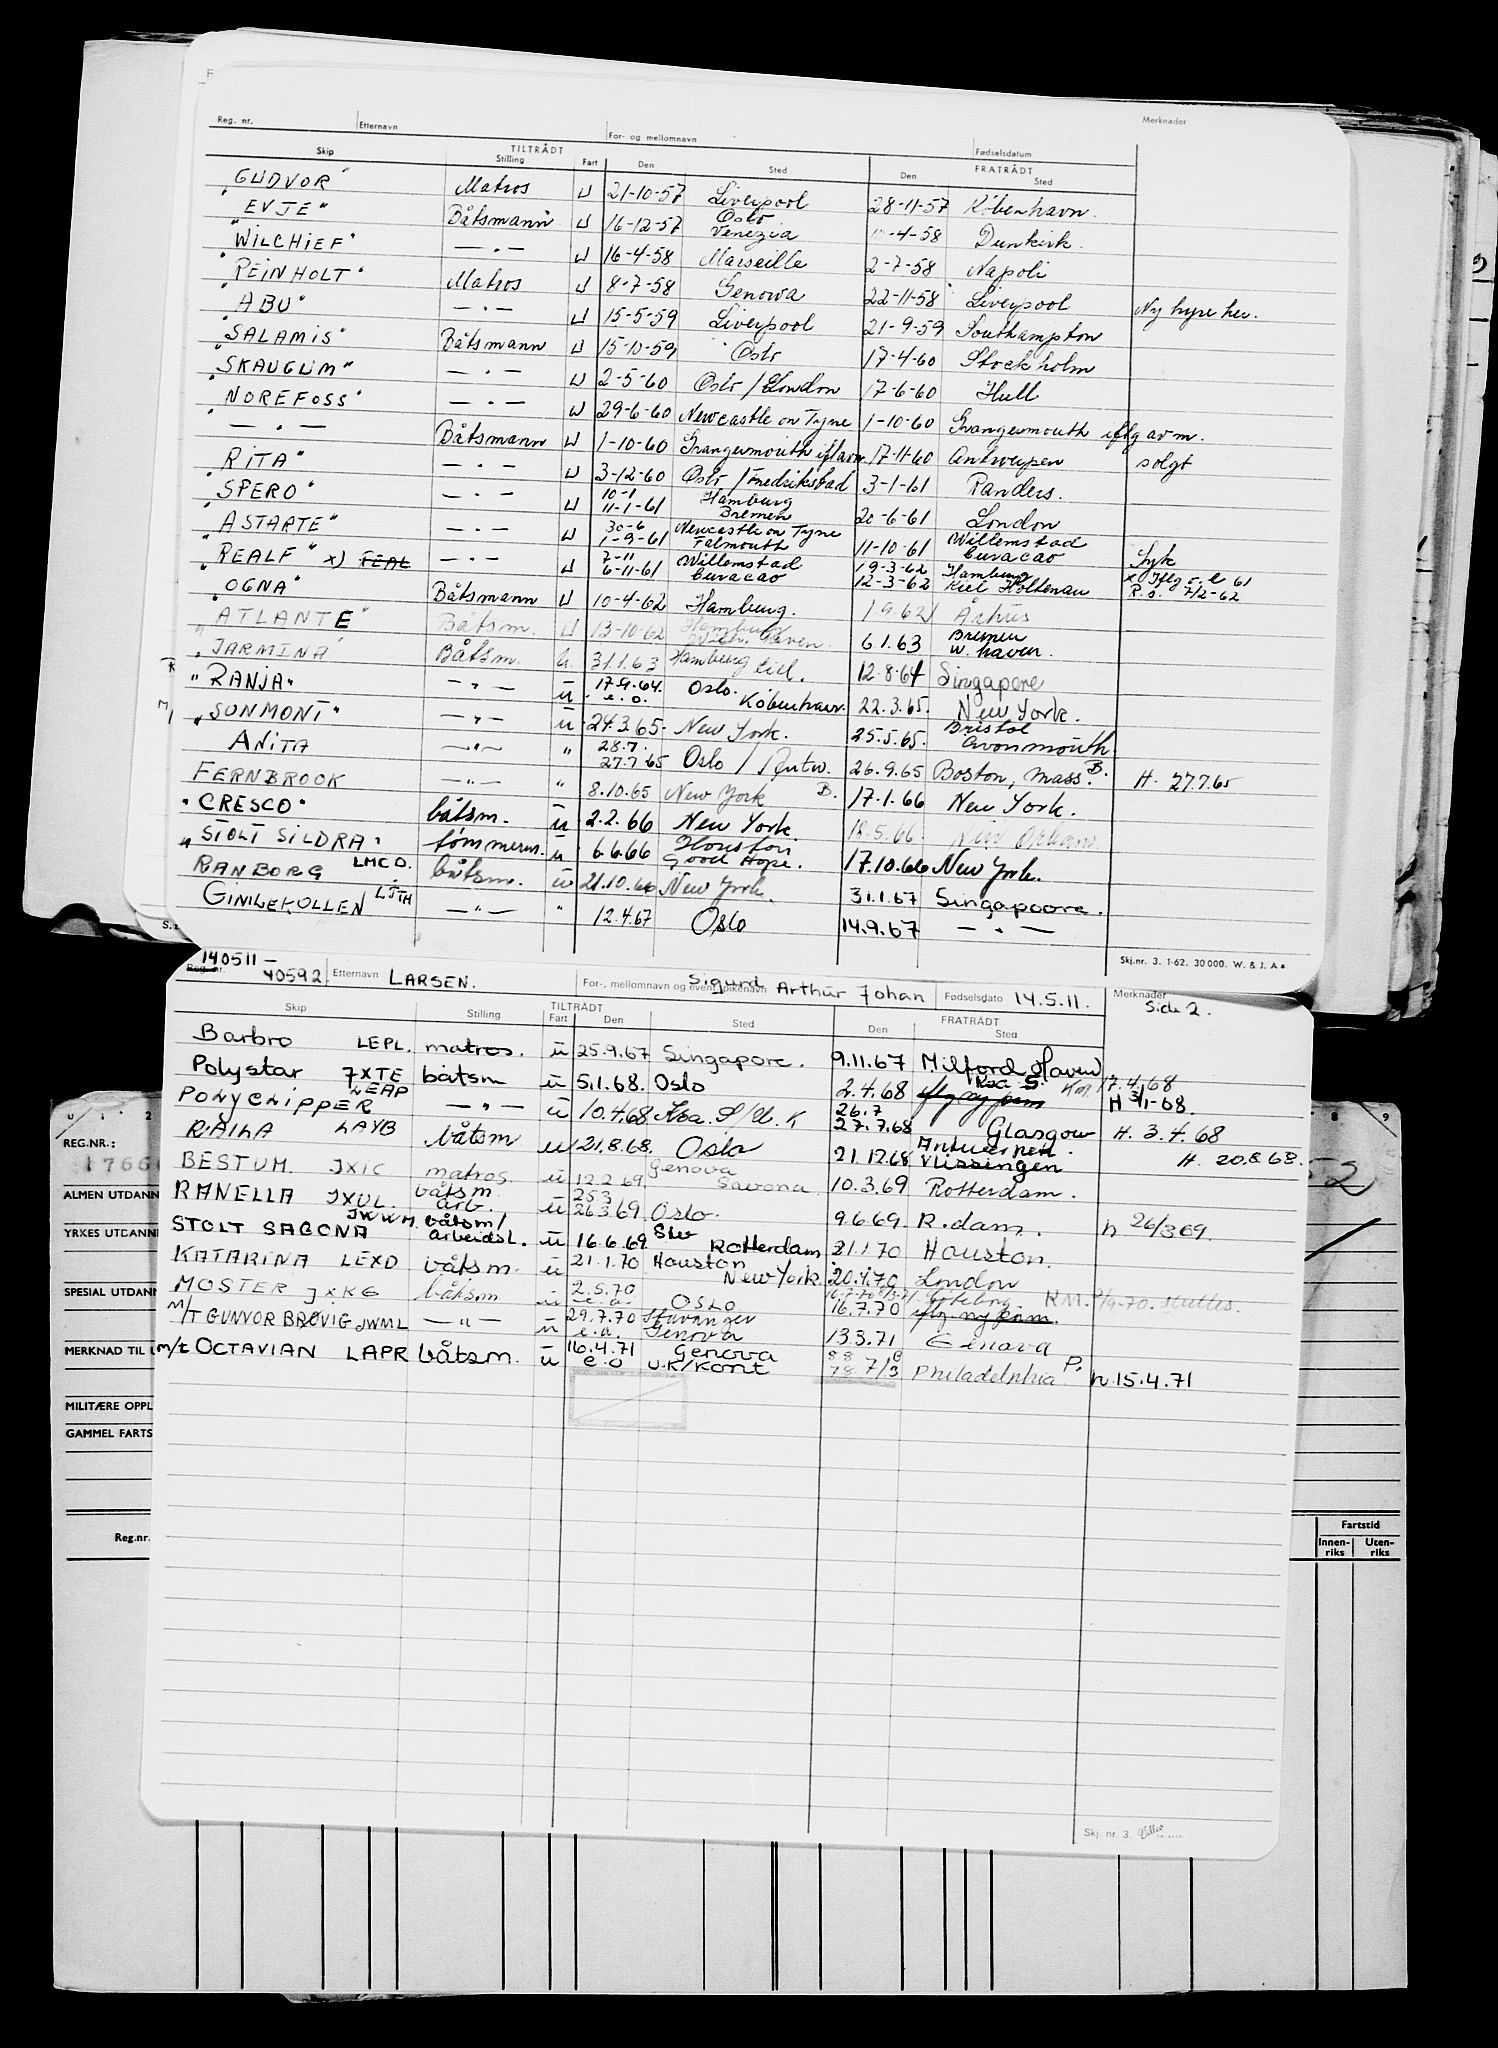 Reg. nr. Etternavn For- og mellomnavn Fødselsdatum Merknader
TILTRÅDT FRATRÅDT
Skip Stilling Fart Den Sted Den Sted
"GUDVOR" Matros U 21-10-57 Liverpool 28-11-57 København.
"EVJE" Båtsmann U 16-12-57 Oslo Venezia -4-58 Dunkirk.
"WILCHIEF" — . — U 16-4-58 Marseille 2-7-58 Napoli
"REINHOLT" Matros U 8-7-58 Genova 22-11-58 Liverpool Ny hyre her.
"ABU" — . — U 15-5-59 Liverpool 21-9-59 Southampton
"SALAMIS" Båtsmann U 15-10-59 Oslo 17-4-60 Stockholm
"SKAUGUM" — . — U 2-5-60 Oslo / London 17-6-60 Hull
"NOREFOSS" — . — U 29-6-60 Newcastle on Tyne 1-10-60 Grangemouth iflg avm.
— " — Båtsmann U 1-10-60 Grangemouth iflavm. 17-11-60 Antwerpen solgt
"RITA" — . — U 3-12-60 Oslo / Fredrikstad 3-1-61 Randers.
"SPERO" — . — U 10-1 11-1-61 Hamburg Bremen 20-6-61 London
"ASTARTE" — . — U 30-6 1-9-61 Newcastle on Tyne Falmouth 11-10-61 Willemstad Curacao Syk
"REALF" x) FEAL — . — U 7-11 6-11-61 Willemstad Curacao 19-3-62 12-3-62 Hamburg Kiel Holtenau x Iflg s.l 61 R.s. 7/2-62
"OGNA" Båtsmann U 10-4-62 Hamburg. 1.9.62 Århus
"ATLANTE" Båtsm. U 13-10-62 Hamburg Wilh. haven. 6.1.63 Bremen W. haven.
"JARMINA" Båtsm. U. 31.1.63 Hamburg till. 12.8.64 Singapore
"RANJA" — " — u 17.9.64. e.o. Oslo. København. 22.3.65. New York.
"SUNMONT" — " — u 24.3.65. New York. 25.5.65. Bristol Avonmouth
ANITA — " — " 28.7. 27.7.65 Oslo / Antw. 26.9.65 Boston, Mass. B. H. 27.7.65
FERNBROOK — " — " 8.10.65 New York B. 17.1.66 New York.
"CRESCO" båtsm. u 2.2.66 New York. 18.5.66 New Orleans.
"STOLT SILDRA" tømmerm. u 6.6.66 Houston Good Hope. 17.10.66 New York.
RANBORG LMCD. båtsm. u 21.10.66 New York. 31.1.67 Singapoore.
GINILEKOLLEN LJTH — " — " 12.4.67 Oslo 14.9.67 — " —
Skj.nr. 3. 1-62. 30 000. W. & J. A s
140511 —
Reg. nr. 40592 Etternavn LARSEN. For-, mellomnavn og event. pikenavn Sigurd Arthur Johan Fødselsdato 14.5.11. Merknader Side 2.
TILTRÅDT FRATRÅDT
Skip Stilling Fart Den Sted Den Sted
Barbro LEPL. matros. u 25.9.67 Singapore. 9.11.67 Milford Haven
Polystar JXTE båtsm u 5.1.68. Oslo 2.4.68 Kba S. iflg ny påm KM 17.4.68 H 3/1-68.
POLYCLIPPER LEAP — " — u 10.4.68 Kba. S/U. K 26.7 27.7.68 Glasgow H. 3.4.68
RAILA LAYB båtsm u 21.8.68. Oslo 21.12.68 Antwerpen. Vlissingen H. 20.8.68.
BESTUM. JXIC matros. u 12.2.69. Genova Savona 10.3.69 Rotterdam.
RANELLA JXUL båtsm. arb. u 25.3 26.3.69 Oslo. 9.6.69. R.dam. h 26/3 69.
STOLT SAGONA JWWM båtsm/ arbeidsl. u 16.6.69. Slev Rotterdam 21.1.70 Houston.
KATARINA LEXD båtsm. u 21.1.70 Houston New York. 20.4.70 London
MOSTER JXKG båtsm u 2.5.70 e.o. OSLO 16.7.70 Göteborg iflg. ny påm. KM. 9-70.
M/T GUNVOR BRØVIG JWML — " — u 29.7.70 e.o. Stavanger Genova 13.3.71 Genova
m/t OCTAVIAN LAPR båtsm. u 16.4.71 e.o Genova U.K/Kont 7/3 Philadelphia P. h 15.4.71
Skj. nr. 3.
REG.NR.:
ALMEN UTDANN
YRKES UTDANN
SPESIAL UTDANN
MERKNAD TIL
MILITÆRE OPPL
GAMMEL FARTS
Reg.nr.
Fartstid
Innen-riks Uten-riks